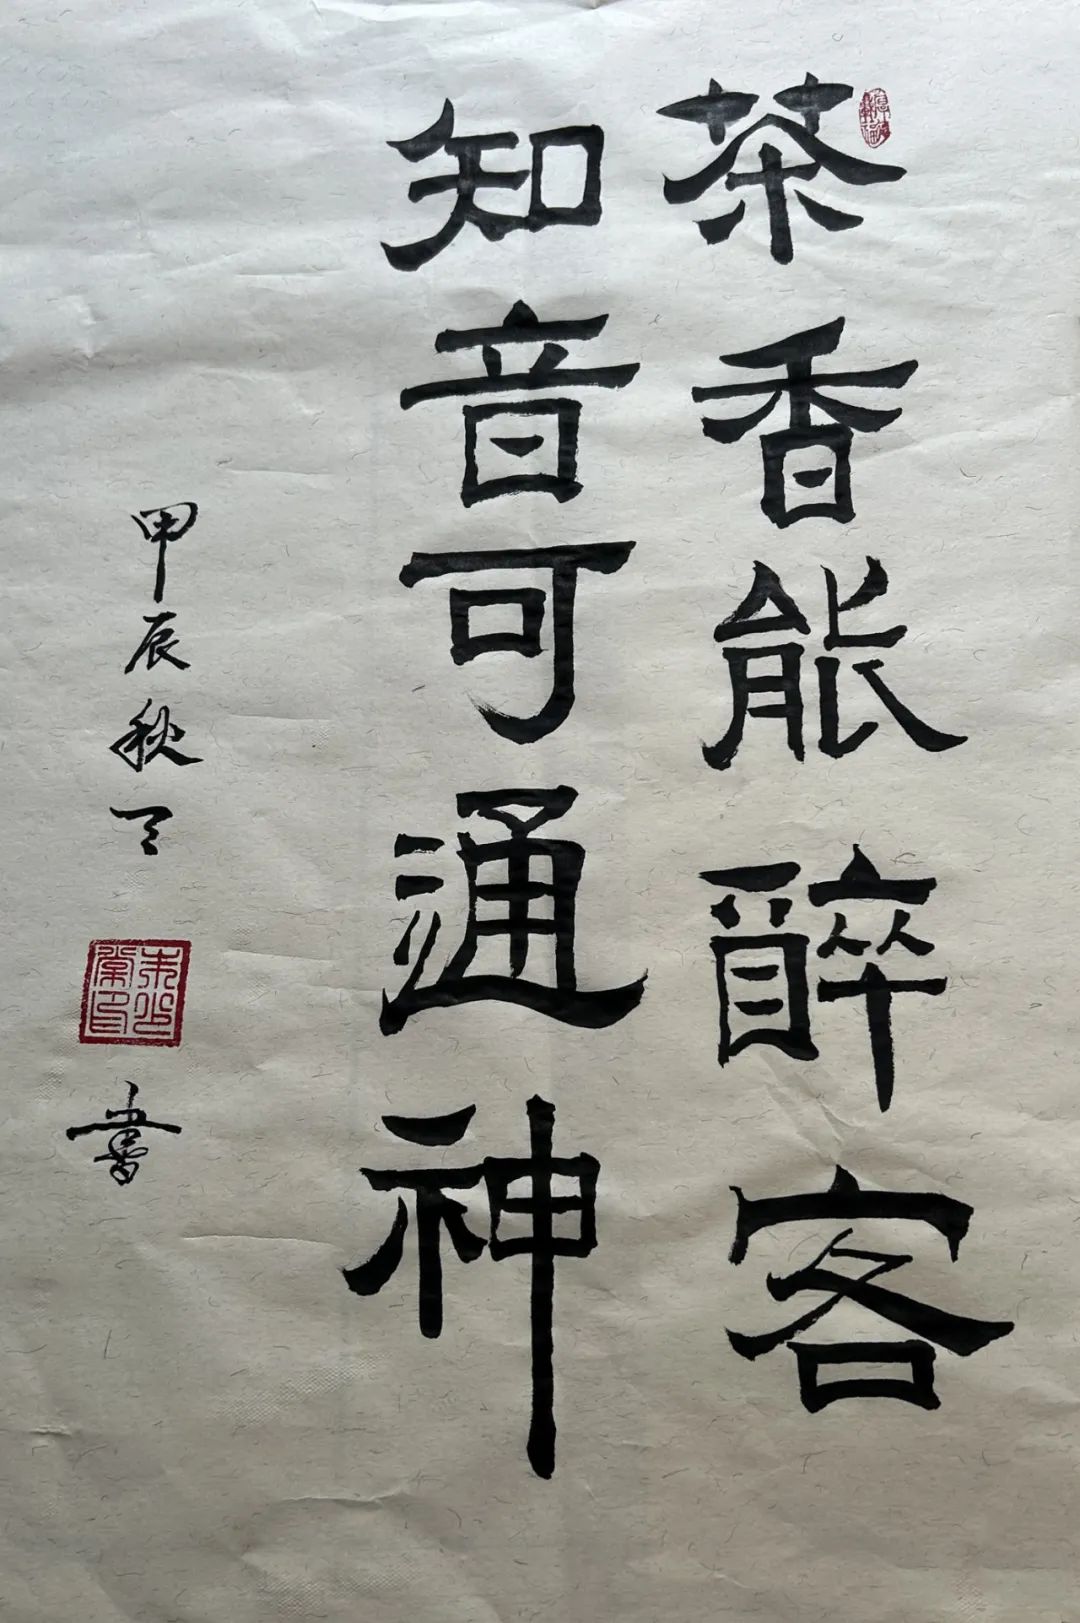 茶香能醉客
知音可通神
甲辰秋
书